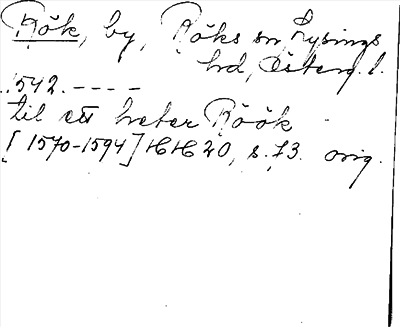 Rök, by, Röks sn, Lysings
hd, Österg. l.
1542. - - - -
til ett heter Röök
[1570-1594] HH 20, s. 73. orig.